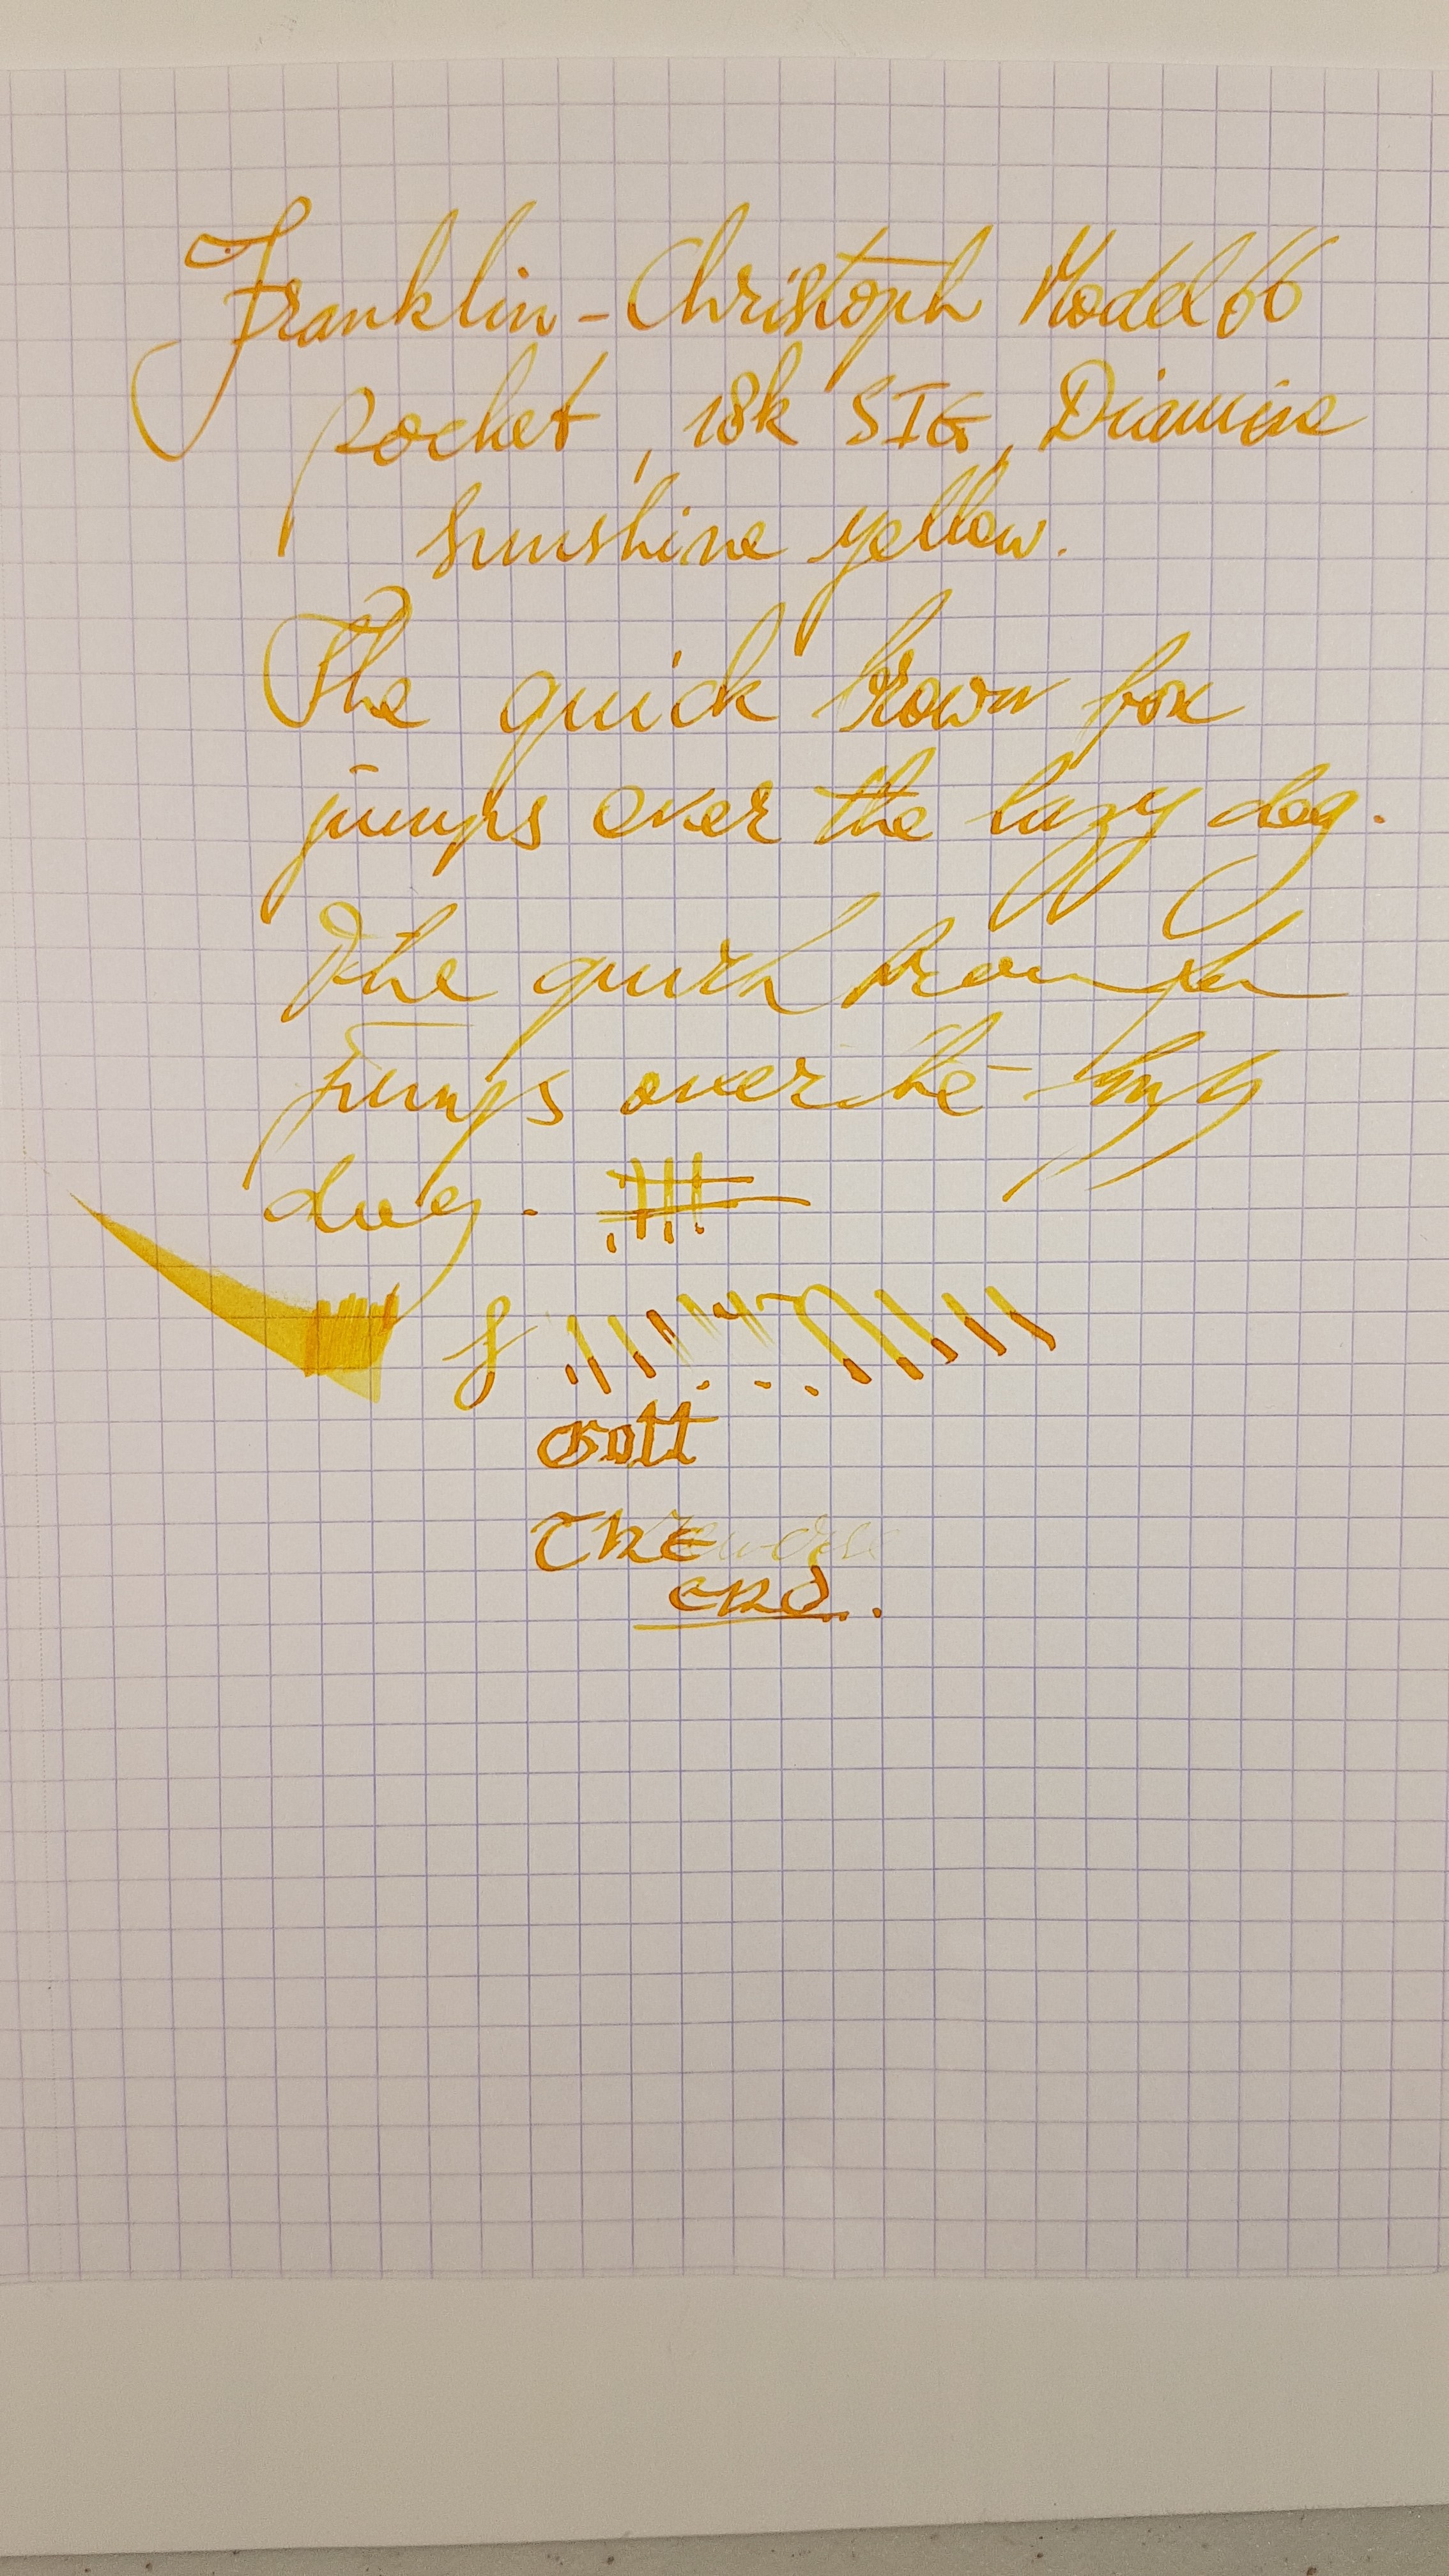 Franklin-Christoph Model 66
pocket, 18k SIG, Diamine
sunshine yellow.
The quick brown fox
jumps over the lazy dog.
The quick brown fox
jumps over the lazy
dog.
Gott
The reverse
end.